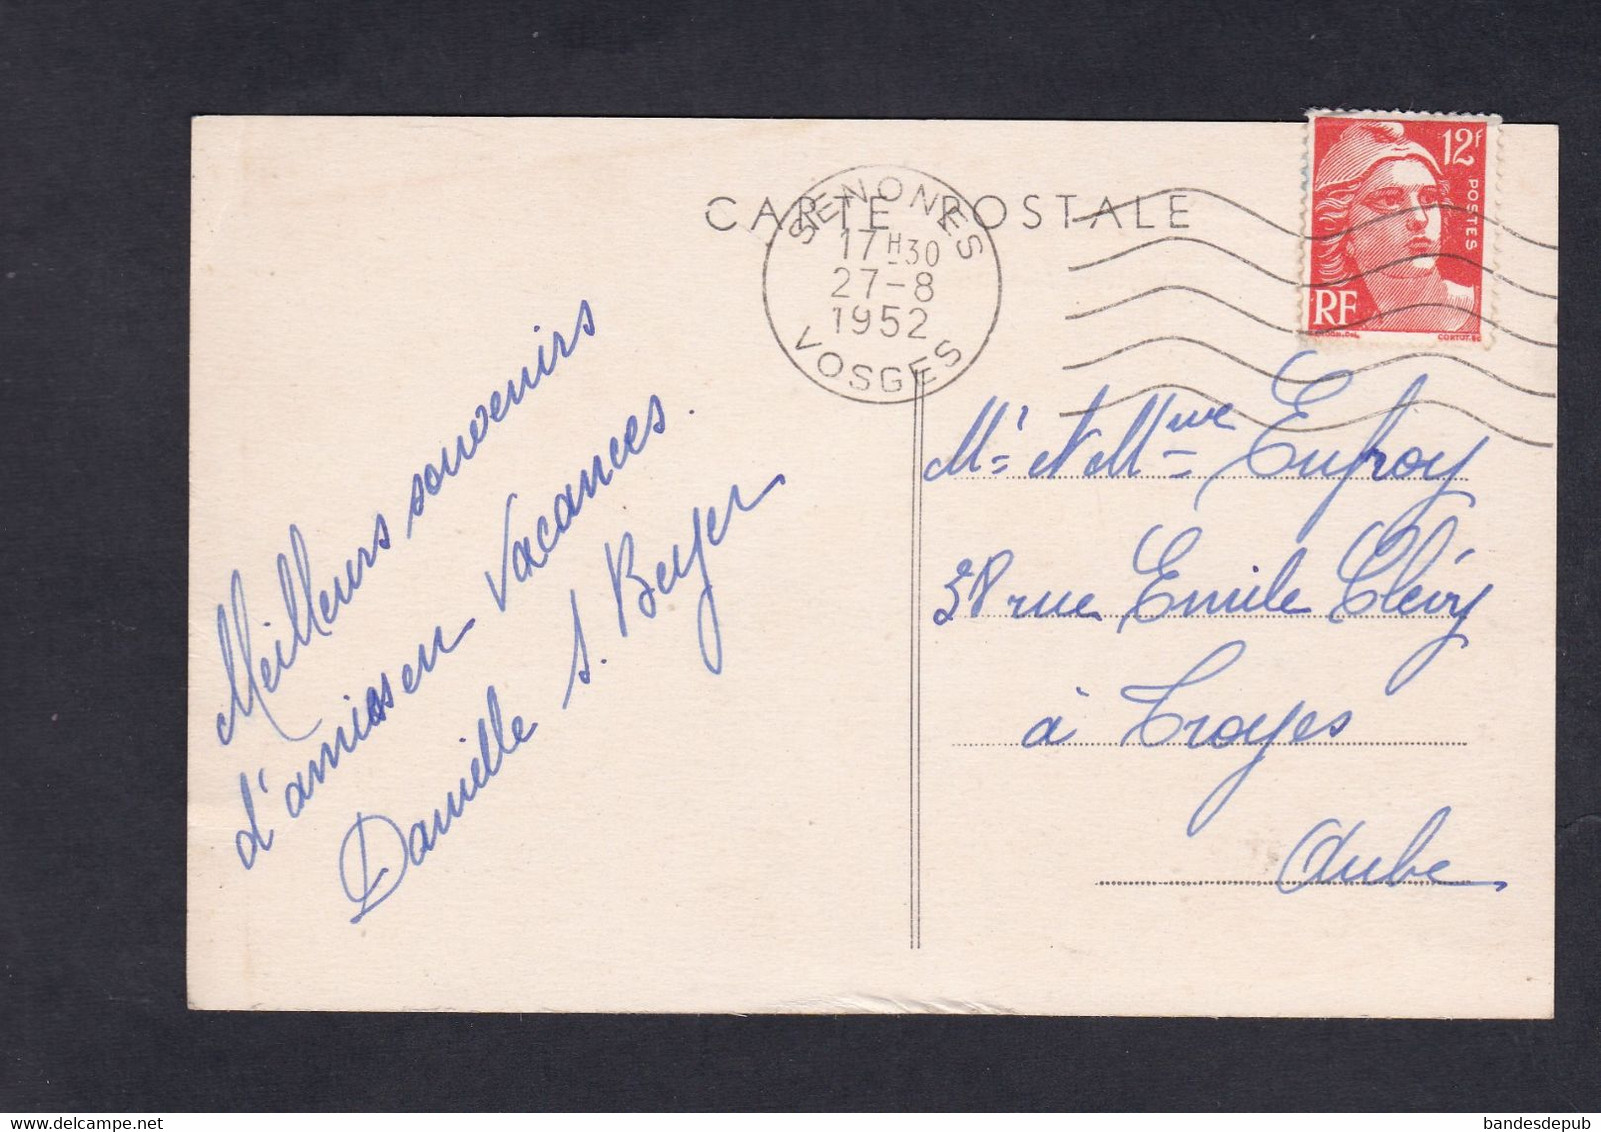 CARTE POSTALE
SENONES
17H30
27-8
1952
VOSGES
12f
POSTES
RF
Meilleurs souvenirs
d'amies en vacances.
Danielle S. Beyer
Mr et Mme Eufroy
38 rue Emile Clévy
à Troyes
Aube
bandesdepub